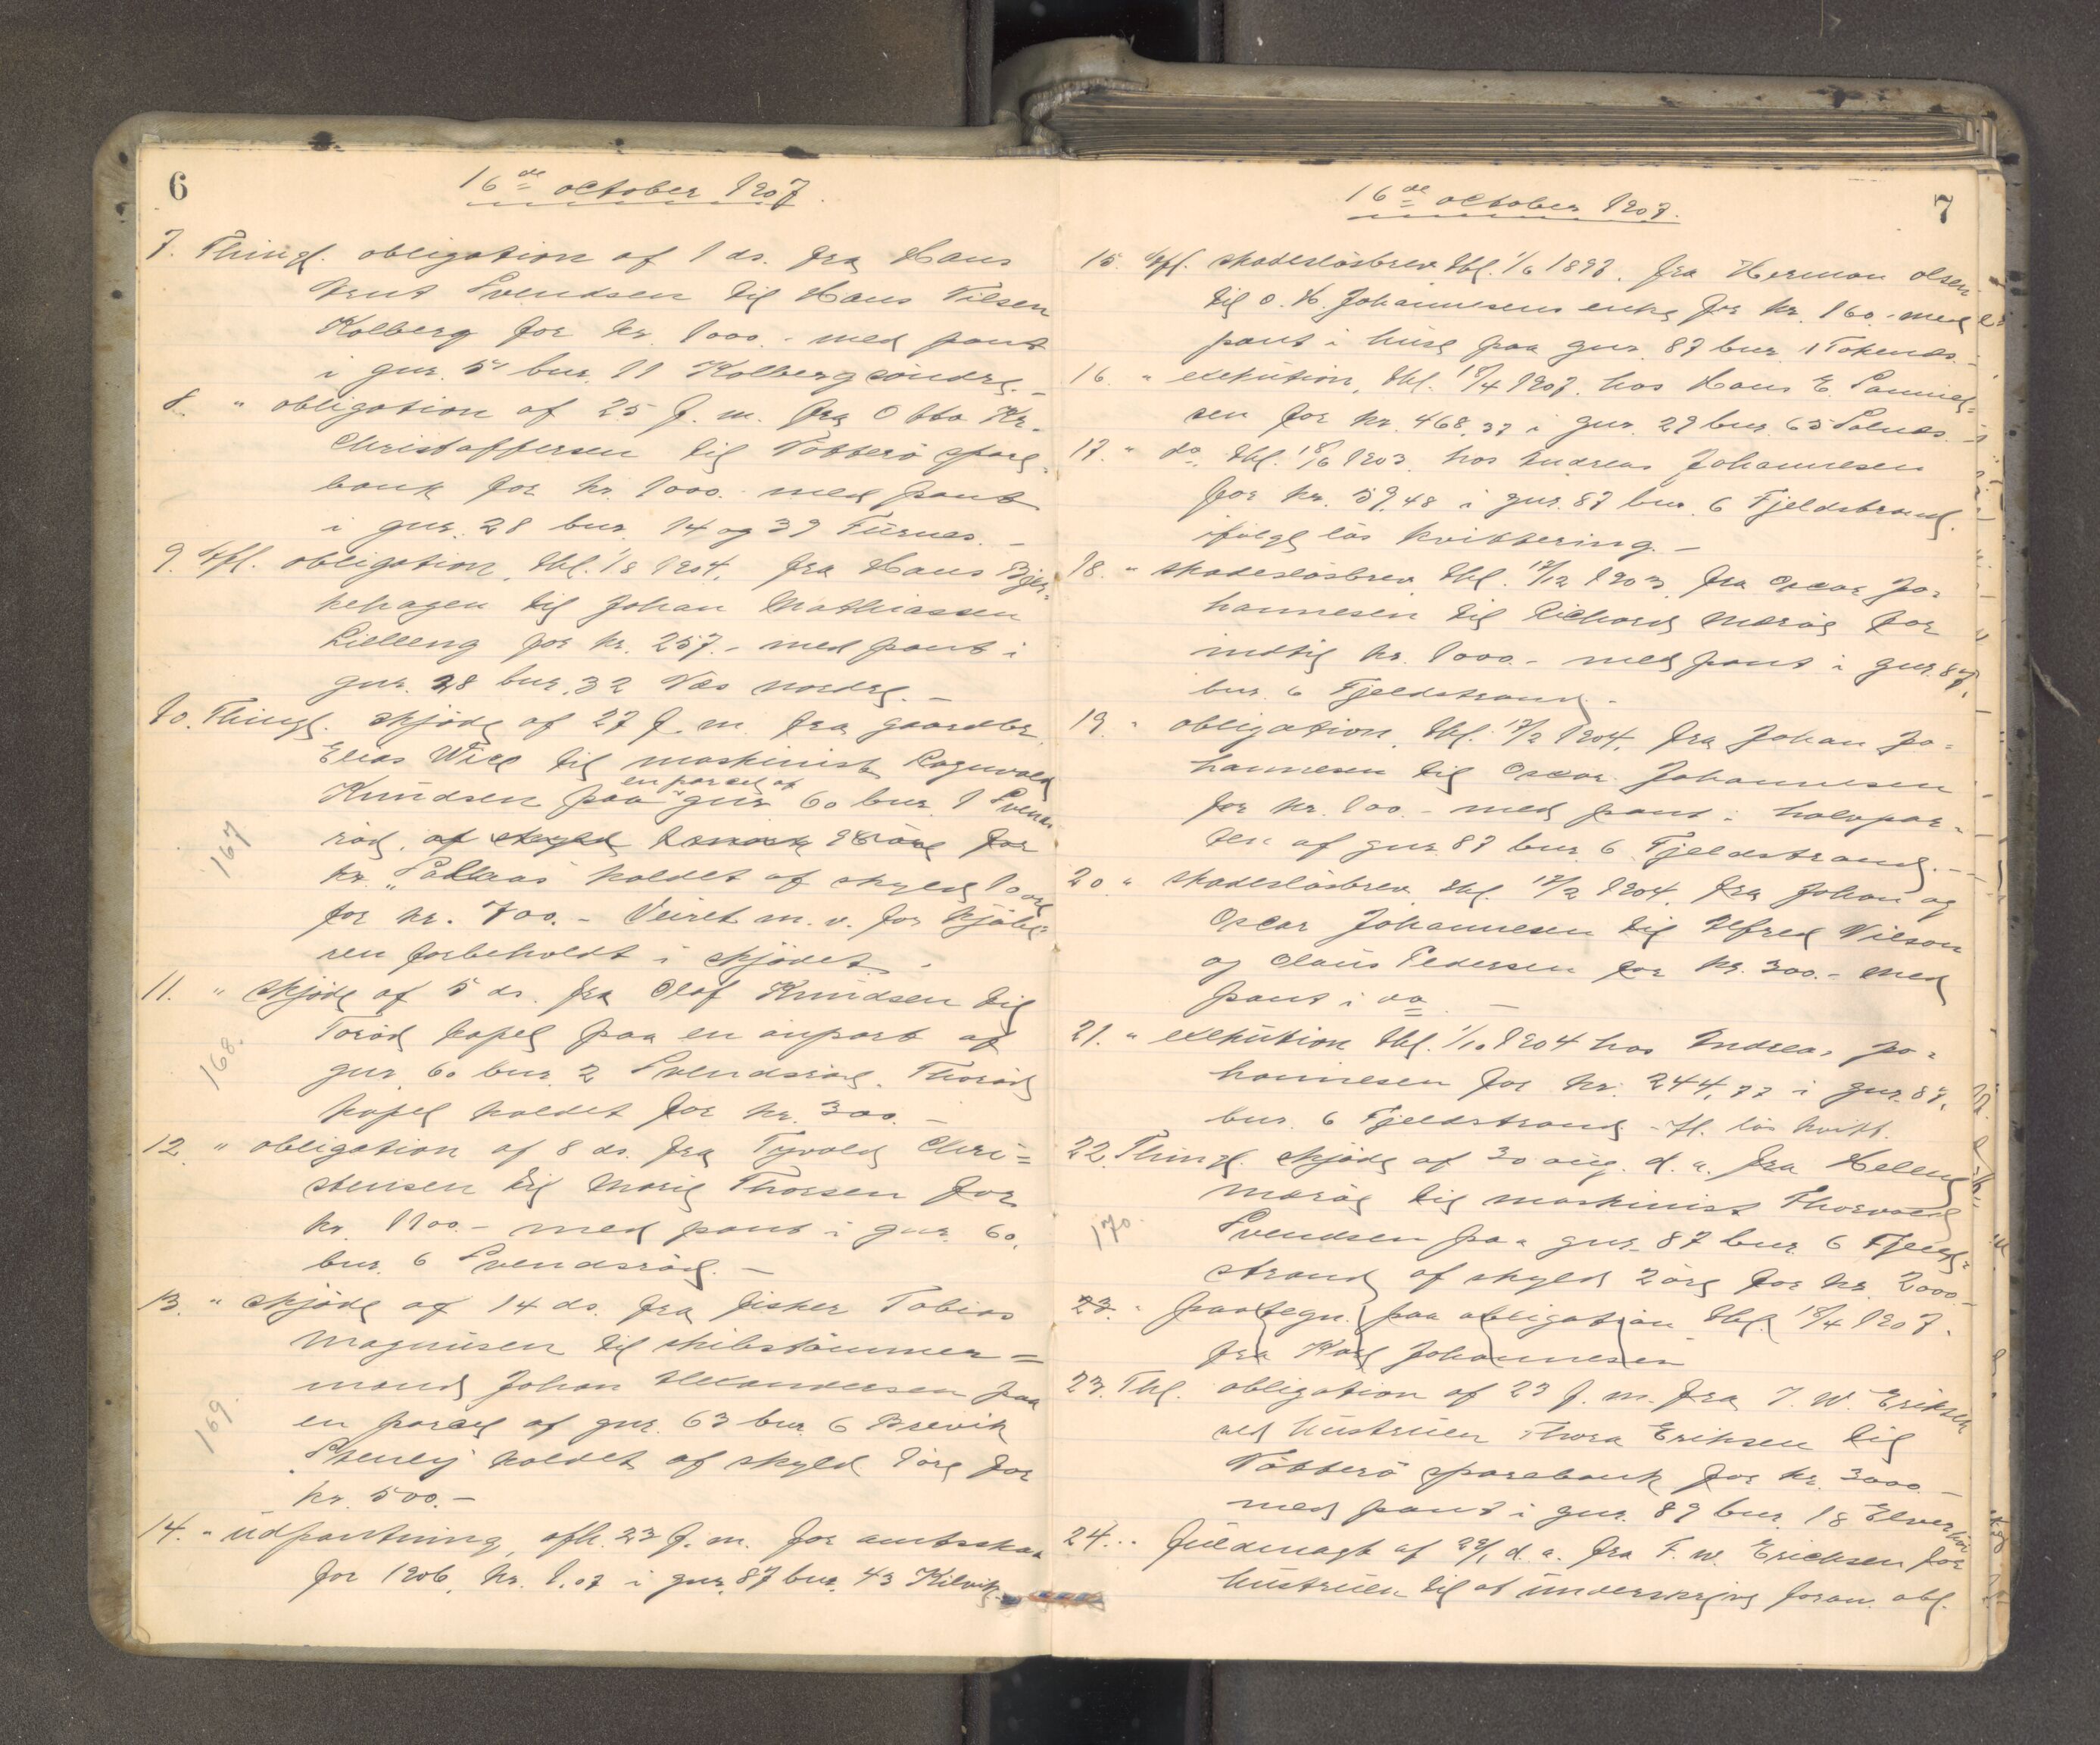 6
16de october 1907.
7. Thingl. obligation af 1 ds. fra Hans
Arnt Svendsen til Hans Nilsen
Kolberg for kr. 1000.- med pant
i gnr. 5 bnr. 11 Kolberg söndre.-
8. " obligation af 25 f. m. fra Otto Kr.
Christoffersen til Nötterö spare-
bank for kr. 1000.- med pant
i gnr. 28 bnr. 14 og 39 Furnes.-
9. Afl. obligation, thl. 1/8 1904, fra Hans Bjer-
kehagen til Johan Mathiassen
Lilleeng for kr. 257.- med pant i
gnr. 28 bnr. 32 Næs nordre.-
10. Thingl. skjöde af 27 f. m. fra gaardbr.
Elias Wiel til maskinist Ragnvald
en parcel af
Knudsen paa gnr. 60 bnr. 1 Svends
röd, af skyld for
167
kr. "Solaas" kaldet af skyld 10 öre
for kr. 700.- Veiret m. v. for kjöbe-
ren forbeholdt i skjödet.-
11. " skjöde af 5 ds. fra Olaf Knudsen til
Toröd kapel paa en anpart af
168.
gnr. 60 bnr. 2 Svendsröd. Thoröd
kapel kaldet for kr. 300.-
12. " obligation af 8 ds. fra Tyvold Chri=
stensen til Marie Thorsen for
kr. 1100.- med pant i gnr. 60,
bnr. 6 Svendsröd.-
13. " skjöde af 14 ds. fra fisker Tobias
Magnusen til skibstömmer=
mand Johan Alexandersen paa
169.
en parcel af gnr. 63 bnr. 6 Brevik
Stenlej kaldet af skyld 1 öre for
kr. 500.-
14. " udpantning, afh. 23 f. m. for amtsskat
for 1906, kr. 1.07 i gnr. 87 bnr. 43 Kilvik.
7
16de october 1907.
15. Afl. skadeslösbrev thl. 1/6 1897. fra Herman Olsen
til O. H. Johannesens enke for kr. 160.- med
pant i huse paa gnr. 87 bnr. 1 Tokenæs.-
16. " exekution, thl. 17/4 1907. hos Hans E. Samuel-
sen for kr. 468,37 i gnr. 29 bnr. 65 Solnæs.
17. " do thl. 18/6 1903. hos Andreas Johannesen
for kr. 59,48 i gnr. 87 bnr. 6 Fjeldstrand.
ifölge lös kvittering.-
18. " skadeslösbrev thl. 17/12 1903. fra Oscar Jo-
hannesen til Richard Maröe for
indtil kr. 1000.- med pant i gnr. 87,
bnr. 6 Fjeldstrand.-
19. " obligation, thl. 17/2 1904, fra Johan Jo-
hannesen til Oscar Johannesen
for kr. 100.- med pant i halvpar-
ten af gnr. 87 bnr. 6 Fjeldstrand.-
20. " skadeslösbrev thl. 17/2 1904. fra Johan og
Oscar Johannesen til Alfred Nilson
og Claus Pedersen for kr. 300.- med
pant i do -
21. " exekution thl. 1/10 1904 hos Andreas Jo-
hannesen for kr. 244,77 i gnr. 87,
bnr. 6 Fjeldstrand - ifl. lös kvitt.
22. Thingl. skjöde af 30 aug. d. a. fra Helene
Maröe til maskinist Thorvald
170.
Svendsen paa gnr. 87 bnr. 6 Fjeld-
strand af skyld 2 öre for kr. 2000.-
23. " paategn. paa obligation thl. 18/4 1907.
fra Karl Johannesen
23. Thl. obligation af 23 f. m. fra F. W. Eriksen
ved hustruen Thora Eriksen til
Nötterö sparebank for kr. 3000.-
med pant i gnr. 89 bnr. 18 Elverhöi
24. .. fuldmagt af 29/1 d. a. fra F. W. Ericksen for
hustruen til at underskrive foran. obl.